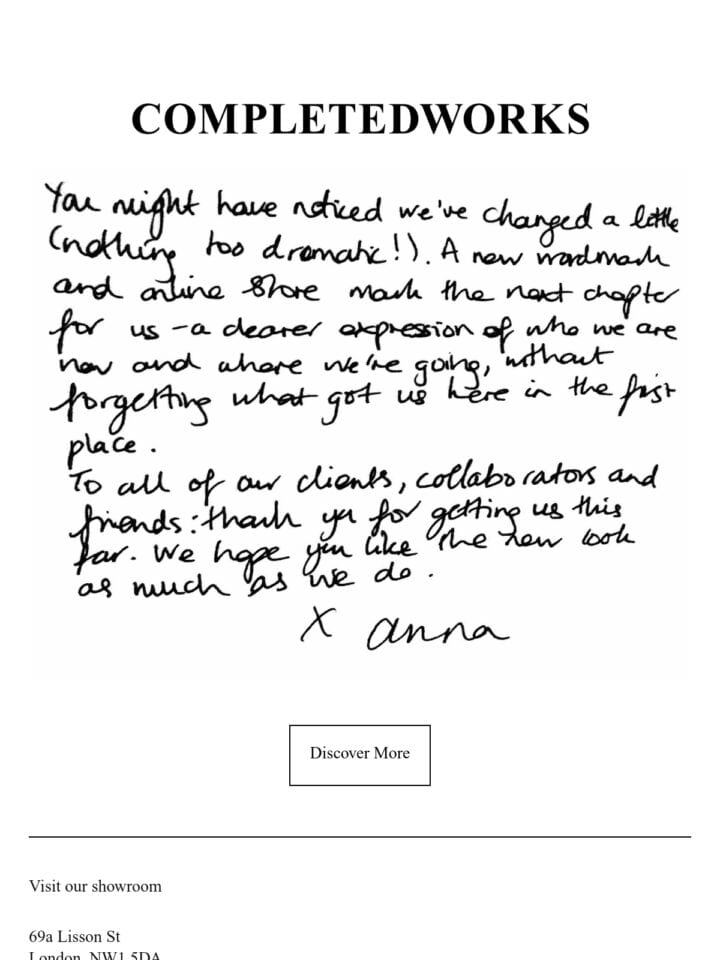 COMPLETEDWORKS
You might have noticed we've changed a little
(nothing too dramatic!). A new wordmark
and online store mark the next chapter
for us - a clearer expression of who we are
now and where we're going, without
forgetting what got us here in the first
place.
To all of our clients, collaborators and
friends: thank you for getting us this
far. We hope you like the new look
as much as we do.
X anna
Discover More
Visit our showroom
69a Lisson St
London, NW1 5DA